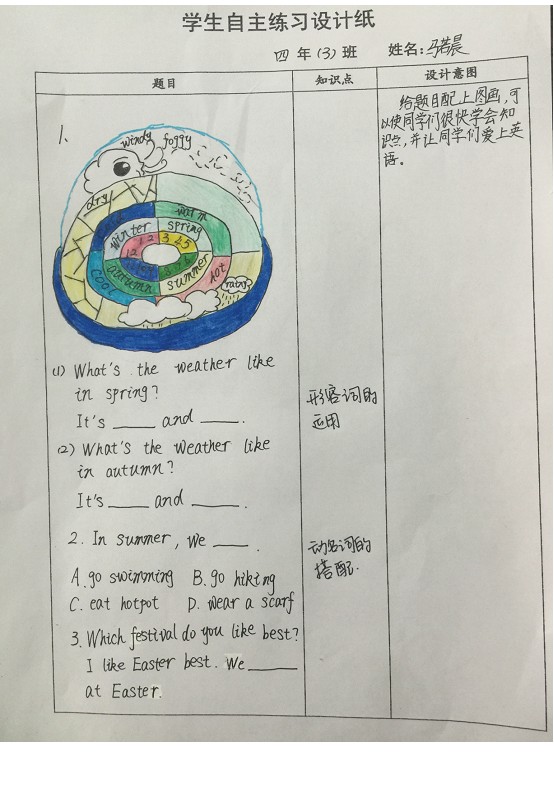 学生自主练习设计纸
四 年 (3) 班 姓名: 马若晨
题目 知识点 设计意图
给题目配上图画,可
以使同学们很快学会知
识点,并让同学们爱上英
语。
1.
windy foggy
dry
warm
winter spring
1 2 3 4 5
12
autumn summer
cool hot
rainy
(1) What's the weather like
in spring?
It's ____ and ____.
形容词的
运用
(2) What's the weather like
in autumn?
It's ____ and ____.
2. In summer, we ____.
动名词的
搭配.
A. go swimming B. go hiking
C. eat hotpot D. wear a scarf
3. Which festival do you like best?
I like Easter best. We ____
at Easter.